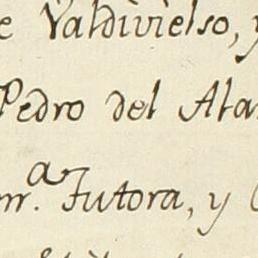 e Valdivielso, y
Pedro del Ala
mr.ª Tutora, y